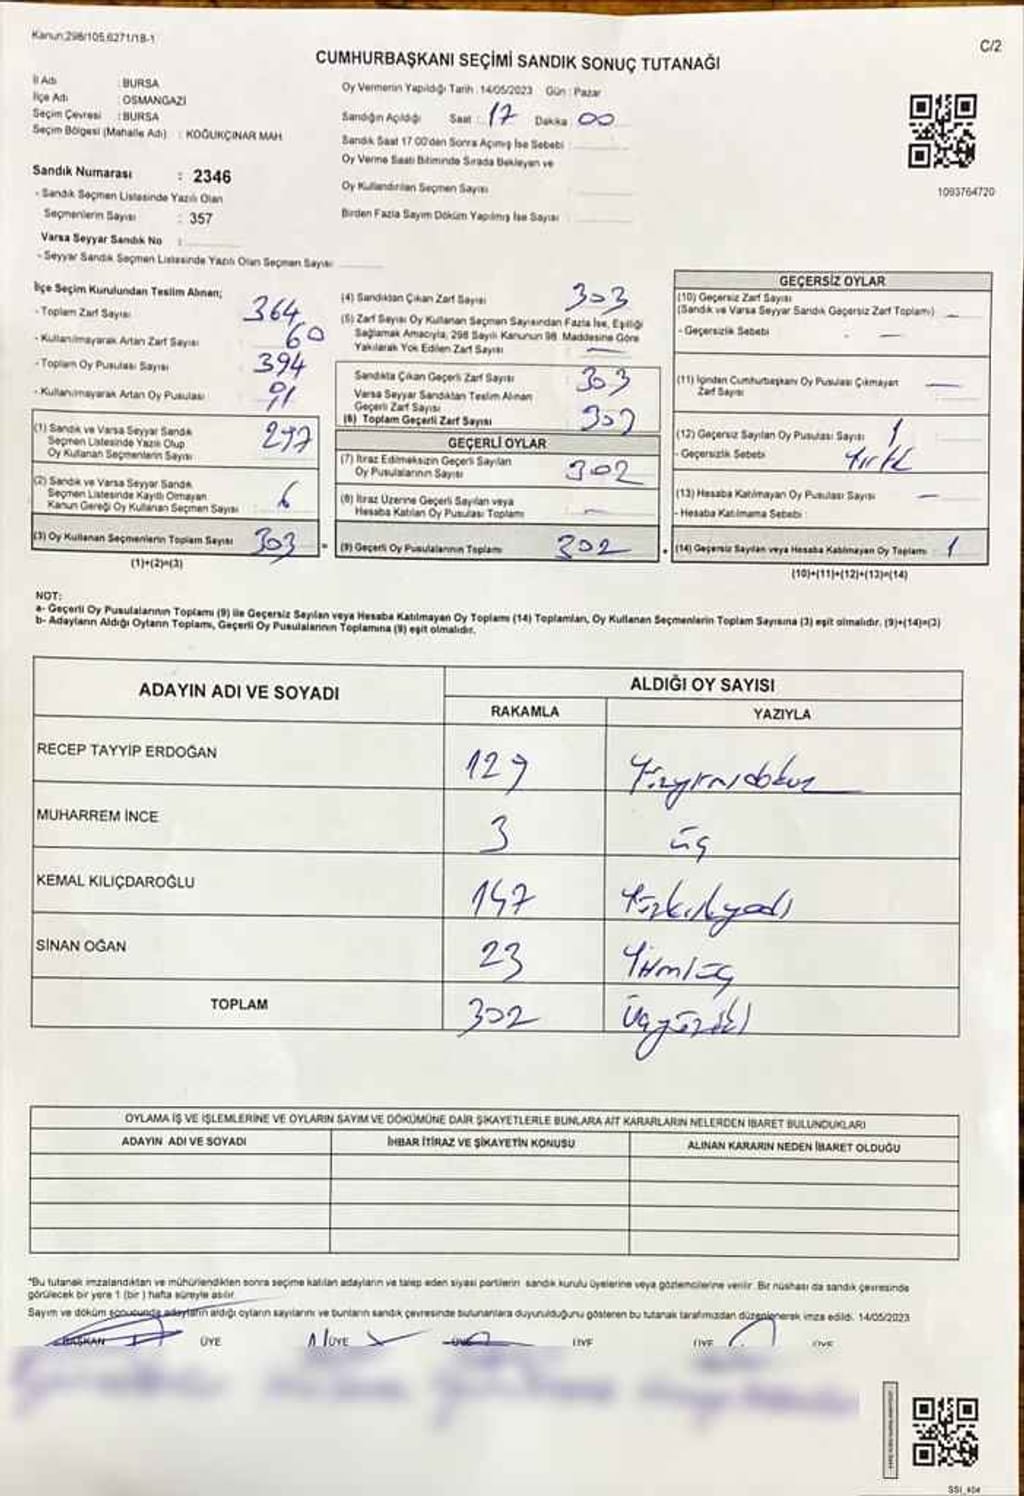 Kanun:298/105,6271/18-1
C/2
CUMHURBAŞKANI SEÇİMİ SANDIK SONUÇ TUTANAĞI
İl Adı : BURSA
İlçe Adı : OSMANGAZİ
Seçim Çevresi : BURSA
Seçim Bölgesi (Mahalle Adı) : KOĞUKÇINAR MAH.
Sandık Numarası : 2346
- Sandık Seçmen Listesinde Yazılı Olan
Seçmenlerin Sayısı : 357
Varsa Seyyar Sandık No :
- Seyyar Sandık Seçmen Listesinde Yazılı Olan Seçmen Sayısı
Oy Vermenin Yapıldığı Tarih : 14/05/2023 Gün : Pazar
Sandığın Açıldığı Saat : 17 Dakika : 00
Sandık Saat 17:00'den Sonra Açımış İse Sebebi :
Oy Verme Saati Bitiminde Sırada Bekleyen ve
Oy Kullandırılan Seçmen Sayısı :
Birden Fazla Sayım Döküm Yapılmış İse Sayısı :
1093764720
İlçe Seçim Kurulundan Teslim Alınan;
- Toplam Zarf Sayısı 364
- Kullanılmayarak Artan Zarf Sayısı 60
- Toplam Oy Pusulası Sayısı 394
- Kullanılmayarak Artan Oy Pusulası 91
(1) Sandık ve Varsa Seyyar Sandık
Seçmen Listesinde Yazılı Olup
Oy Kullanan Seçmenlerin Sayısı 297
(2) Sandık ve Varsa Seyyar Sandık
Seçmen Listesinde Kayıtlı Olmayan
Kanun Gereği Oy Kullanan Seçmen Sayısı : 6
(3) Oy Kullanan Seçmenlerin Toplam Sayısı 303
(1)+(2)=(3)
(4) Sandıktan Çıkan Zarf Sayısı 303
(5) Zarf Sayısı Oy Kullanan Seçmen Sayısından Fazla İse, Eşitliği
Sağlamak Amacıyla, 298 Sayılı Kanunun 98. Maddesine Göre
Yakılarak Yok Edilen Zarf Sayısı —
Sandıkta Çıkan Geçerli Zarf Sayısı 303
Varsa Seyyar Sandıktan Teslim Alınan
Geçerli Zarf Sayısı
(6) Toplam Geçerli Zarf Sayısı 303
GEÇERLİ OYLAR
(7) İtiraz Edilmeksizin Geçerli Sayılan
Oy Pusulalarının Sayısı 302
(8) İtiraz Üzerine Geçerli Sayılan veya
Hesaba Katılan Oy Pusulası Toplamı —
(9) Geçerli Oy Pusulalarının Toplamı 302
GEÇERSİZ OYLAR
(10) Geçersiz Zarf Sayısı
(Sandık ve Varsa Seyyar Sandık Geçersiz Zarf Toplamı) —
- Geçersizlik Sebebi : —
(11) İçinden Cumhurbaşkanı Oy Pusulası Çıkmayan
Zarf Sayısı —
(12) Geçersiz Sayılan Oy Pusulası Sayısı 1
- Geçersizlik Sebebi : Yırtık
(13) Hesaba Katılmayan Oy Pusulası Sayısı —
- Hesaba Katılmama Sebebi :
(14) Geçersiz Sayılan veya Hesaba Katılmayan Oy Toplamı : 1
(10)+(11)+(12)+(13)=(14)
NOT:
a- Geçerli Oy Pusulalarının Toplamı (9) ile Geçersiz Sayılan veya Hesaba Katılmayan Oy Toplamı (14) Toplamları, Oy Kullanan Seçmenlerin Toplam Sayısına (3) eşit olmalıdır. (9)+(14)=(3)
b- Adayların Aldığı Oyların Toplamı, Geçerli Oy Pusulalarının Toplamına (9) eşit olmalıdır.
ADAYIN ADI VE SOYADI
ALDIĞI OY SAYISI
RAKAMLA YAZIYLA
RECEP TAYYİP ERDOĞAN 129 Yüzyirmidokuz
MUHARREM İNCE 3 üç
KEMAL KILIÇDAROĞLU 147 Yüzkırkyedi
SİNAN OĞAN 23 Yirmiüç
TOPLAM 302 Üçyüziki
OYLAMA İŞ VE İŞLEMLERİNE VE OYLARIN SAYIM VE DÖKÜMÜNE DAİR ŞİKAYETLERLE BUNLARA AİT KARARLARIN NELERDEN İBARET BULUNDUKLARI
ADAYIN ADI VE SOYADI İHBAR İTİRAZ VE ŞİKAYETİN KONUSU ALINAN KARARIN NEDEN İBARET OLDUĞU
*Bu tutanak imzalandıktan ve mühürlendikten sonra seçime katılan adayların ve talep eden siyasi partilerin sandık kurulu üyelerine veya gözlemcilerine verilir. Bir nüshası da sandık çevresinde
görülecek bir yere 1 (bir) hafta süreyle asılır.
Sayım ve döküm sonucunda adayların aldığı oyların sayılarını ve bunların sandık çevresinde bulunanlara duyurulduğunu gösteren bu tutanak tarafımızdan düzenlenerek imza edildi. 14/05/2023
BAŞKAN ÜYE ÜYE ÜYE ÜYE ÜYE ÜYE
SSI_404